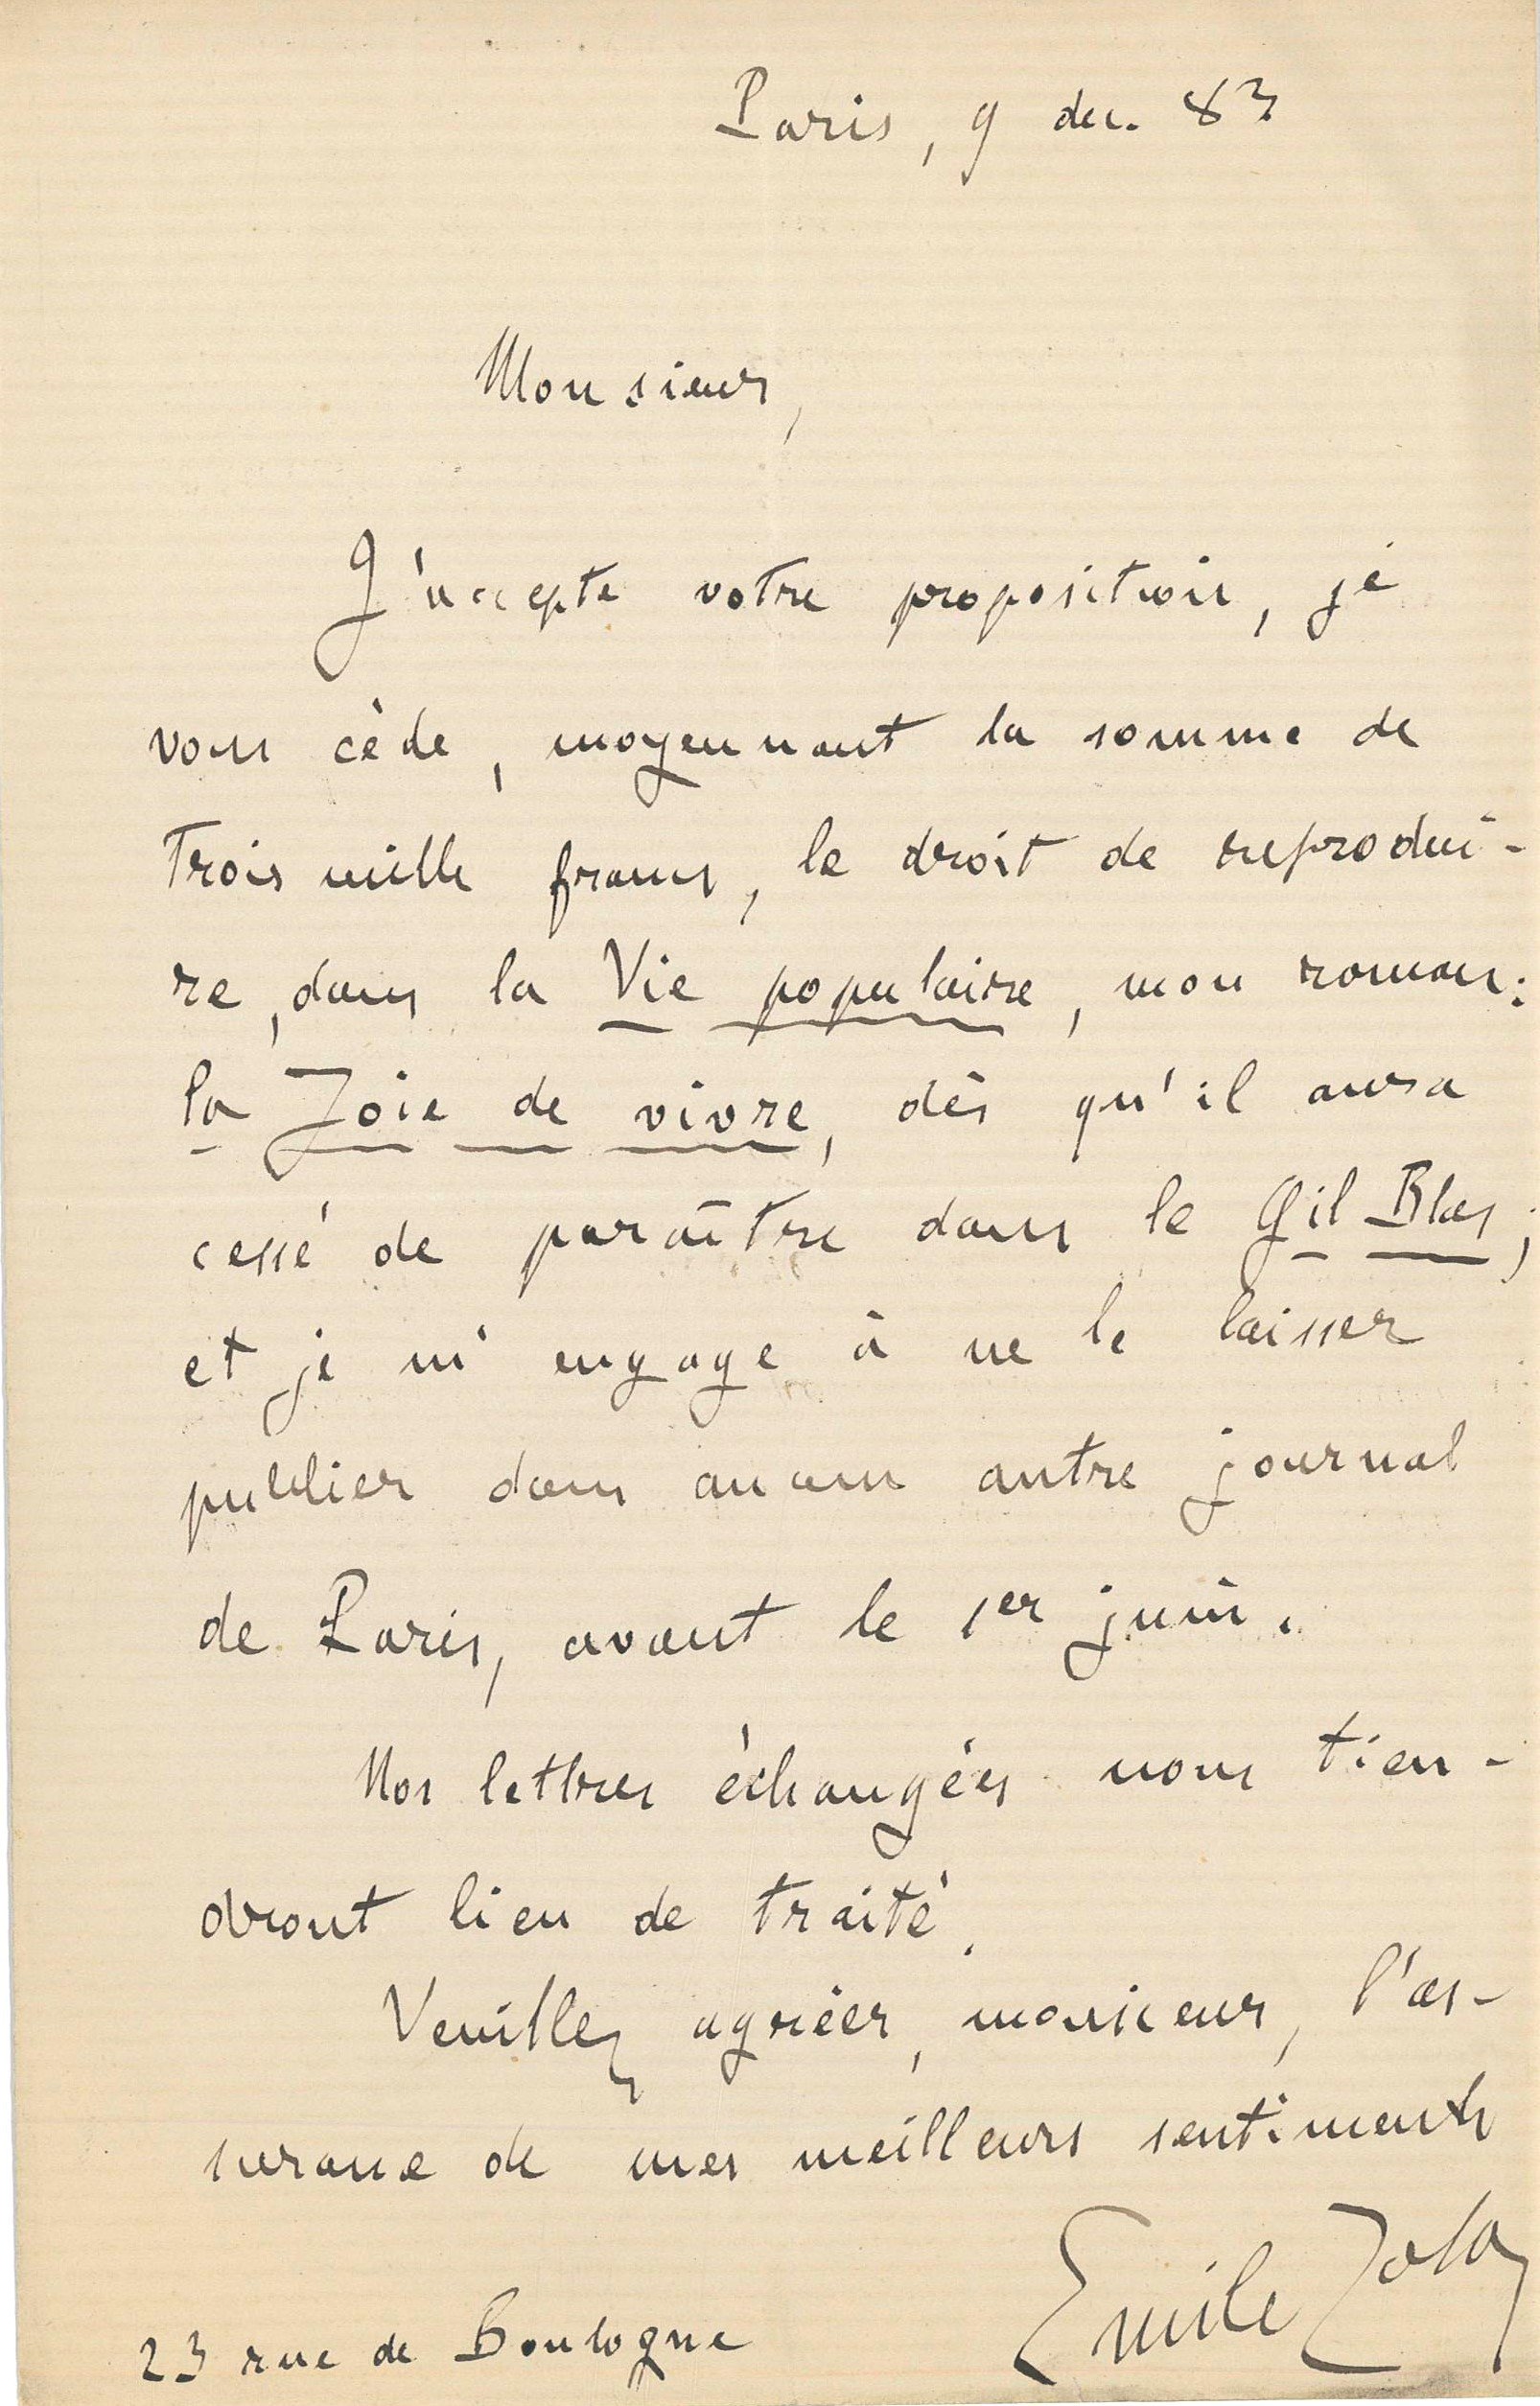 Paris, 9 déc. 83
Monsieur,
J'accepte votre proposition, je
vous cède, moyennant la somme de
trois mille francs, le droit de reprodui-
re, dans la Vie populaire, mon roman :
la Joie de vivre, dès qu'il aura
cessé de paraître dans le Gil Blas ;
et je m'engage à ne le laisser
publier dans aucun autre journal
de Paris, avant le 1er juin.
Nos lettres échangées nous tien-
dront lieu de traité.
Veuillez agréer, monsieur, l'as-
surance de mes meilleurs sentiments
Emile Zola
23 rue de Boulogne